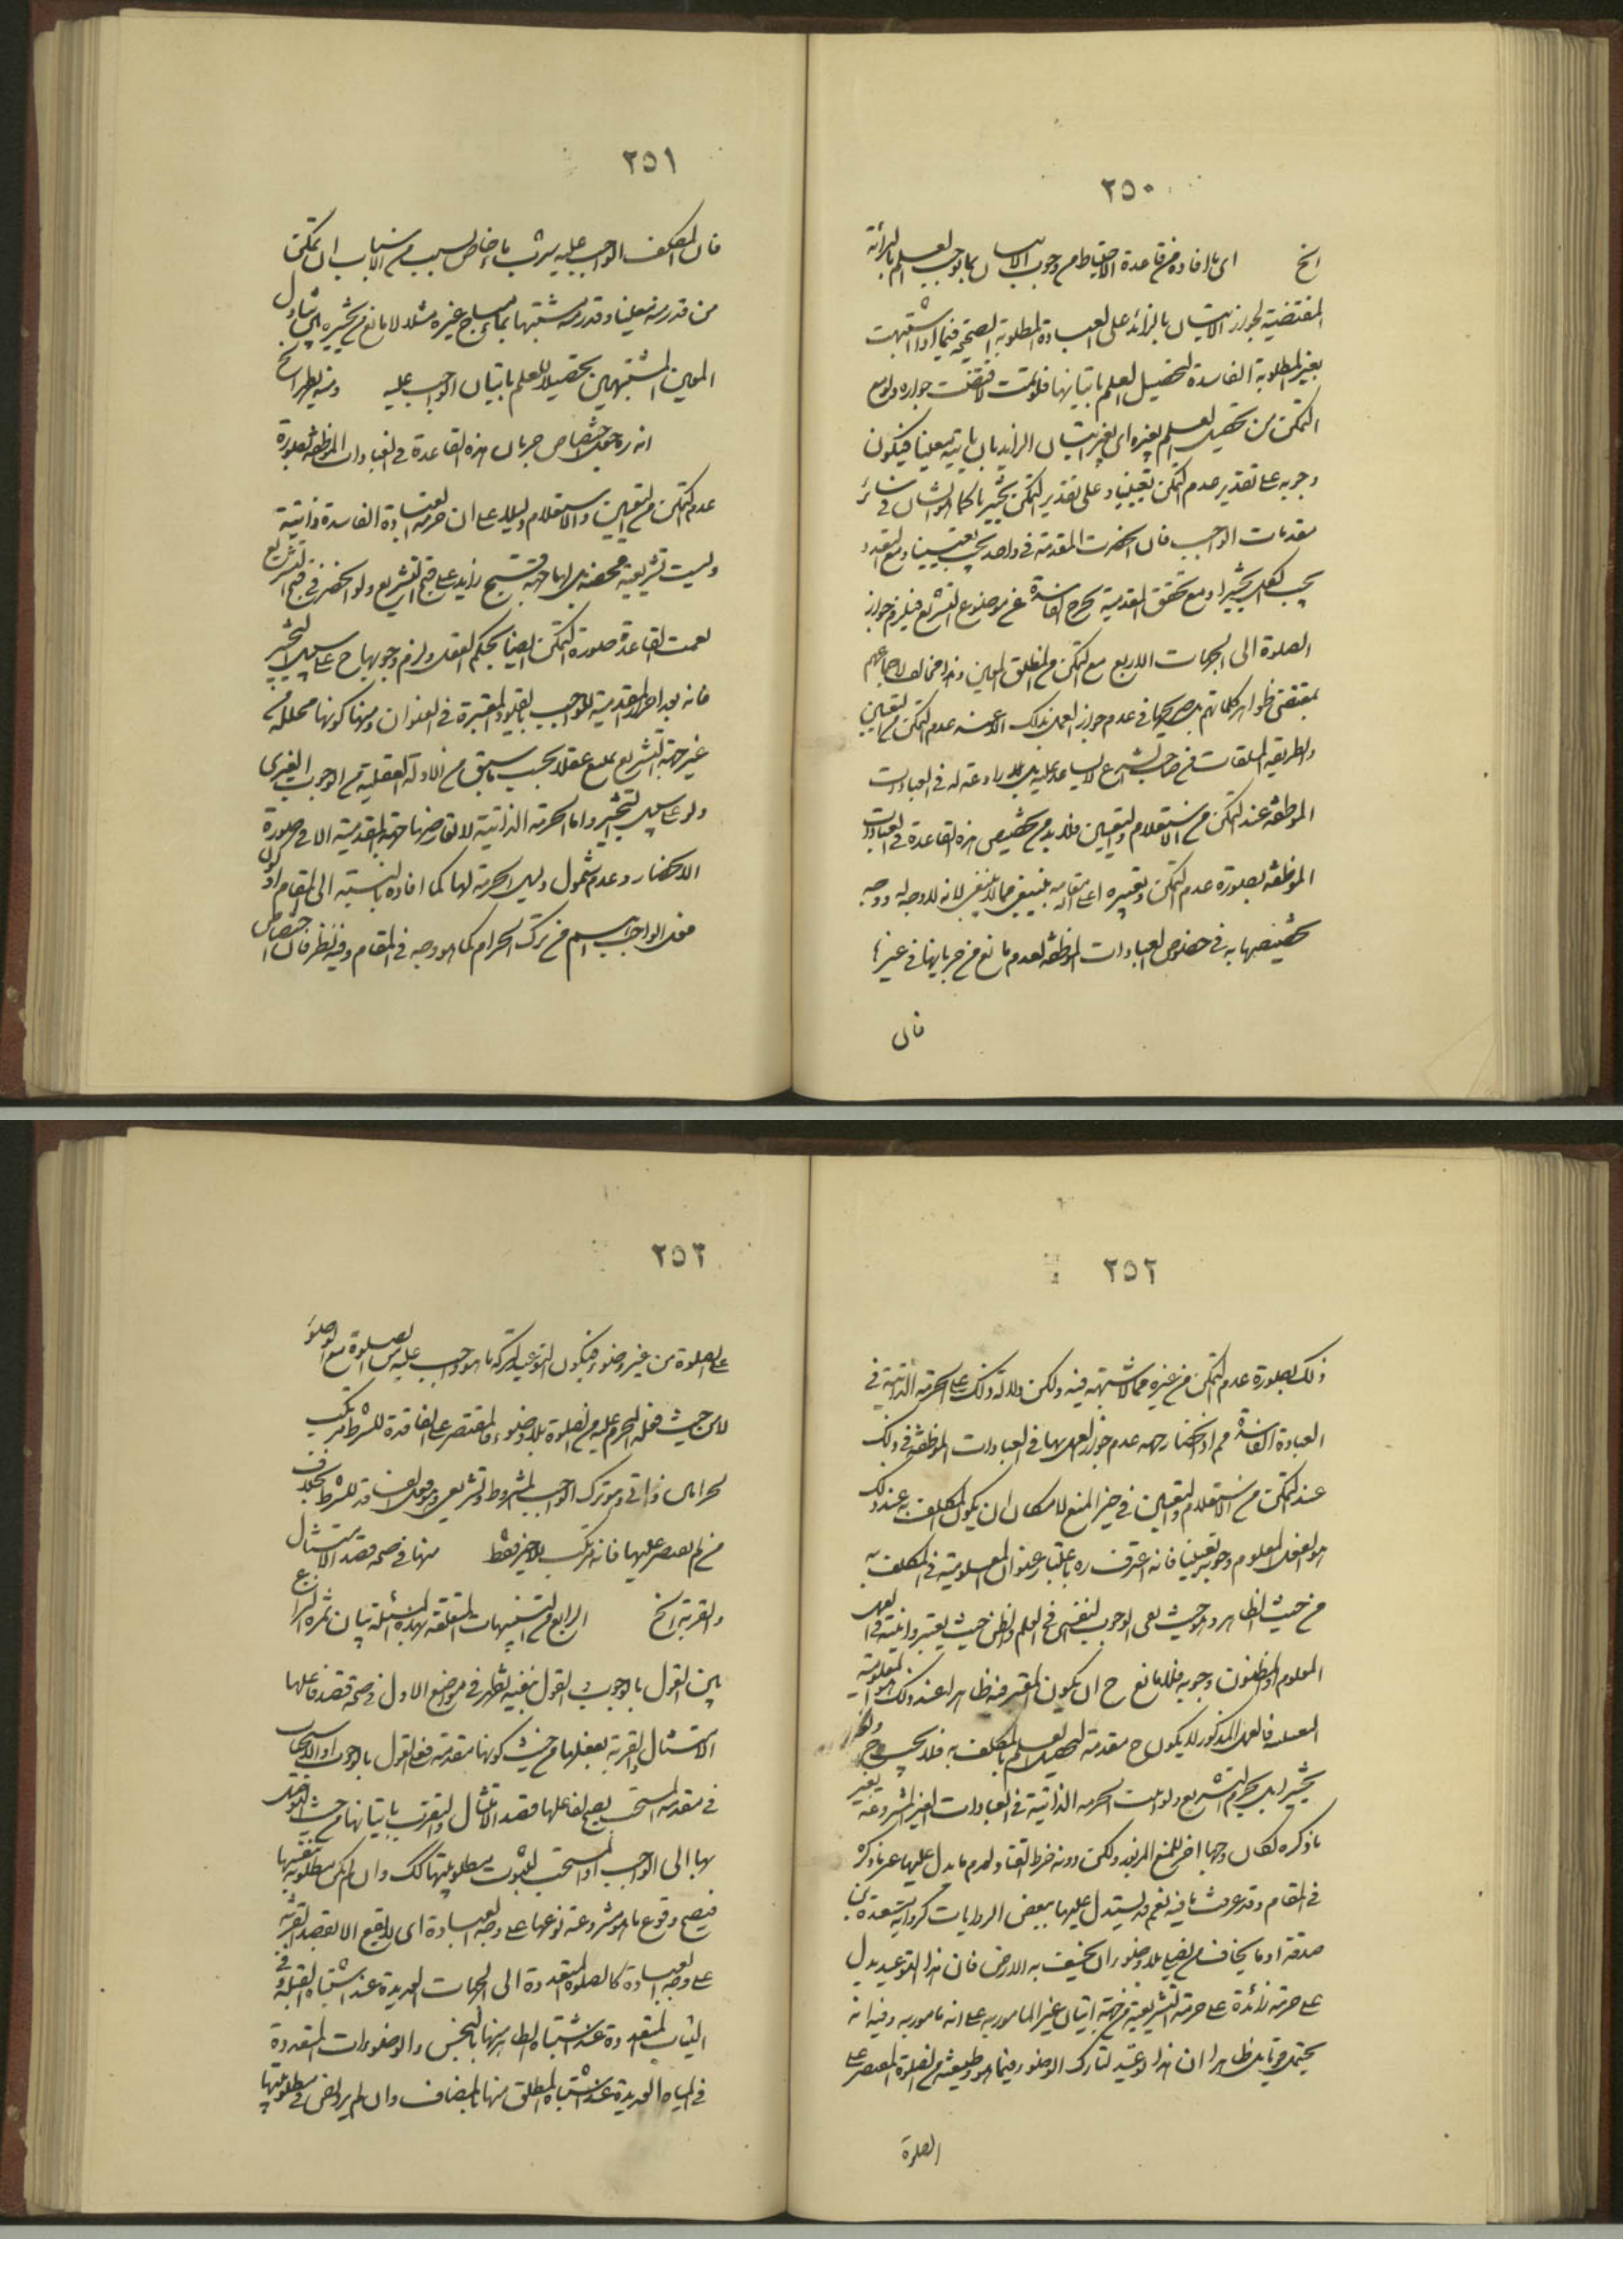 ٢٥٠
الخ ای ما افاده من قاعدة الاحتیاط من وجوب الاتیان بما یوجب العلم بالبرائة
المقتضیة لجواز الاتیان بالزائد علی العبادة المطلوبة الصحیحة فیما اذا اشتبهت
بغیر المطلوبة الفاسدة لتحصیل العلم باتیانها فلو تمت لاقتضت جوازه ولو مع
التمکن من تحصیل العلم بغیره ای بغیر اتیان الزاید بان یاتیه معینا فیکون
وجوبه علی تقدیر عدم التمکن تعیینیا و علی تقدیر التمکن تخییریا کما هو الشان فی سائر
مقدمات الواجب فان انحصرت المقدمة فی واحد یجب تعیینا و مع التعدد
یجب الکل تخییرا و مع تحقق المقدمیة یخرج الفاسدة عن موضوع التشریع فیلزم جواز
الصلوة الی الجهات الاربع مع التمکن من المعین وهذا مخالف لاجماعهم
بمقتضی ظواهر کلماتهم بل صریحها فی عدم جواز العمل بذلک الا عند عدم التمکن من التعیین
والطریقة المتلقات من صاحب الشرع لا یساعد علیه بل رادعة له فی العبادات
الموظفة عند التمکن من الاستعلام والتعیین فلابد من تخصیص هذه القاعدة فی العبادات
الموظفة بصورة عدم التمکن و تعبیره اعلی الله مقامه بینبغی مما لا ینبغی لانه لا وجه له و وجه
تخصیصها به فی خصوص العبادات الموظفة لعدم مانع من جریانها فی غیرها
فان
٢٥١
فان المکلف الواجب علیه شرب ماء خاص لسبب من الاسباب ان تمکن
من قدر منه معینا و قدر منه مشتبها بماء مباح غیره مثلا لا مانع من تخییره بین تناول
المعین والمشتبهین تحصیلا للعلم باتیان الواجب علیه ومنه یظهر الخ
انه ره جعل اختصاص جریان هذه القاعدة فی العبادات الموظفة بصورة
عدم التمکن من التعیین والاستعلام دلیلا علی ان حرمة العبادة الفاسدة ذاتیة
ولیست تشریعیة محضة بل لها جهة قبح زاید علی قبح التشریع ولو انحصر فی قبح التشریع
لعمت القاعدة صورة التمکن ایضا بحکم العقل ولزم وجوبها ح علی سبیل التخییر
فانه بعد احراز المقدمیة للواجب بالقیود المعتبرة فی العنوان ومنها کونها محللة من
غیر جهة التشریع یمنع عقلا بحسب ما سبق من الادلة العقلیة من الوجوب الغیری
ولو علی سبیل التخییر واما الحرمة الذاتیة لا تعارضها جهة المقدمیة الا فی صورة
الانحصار و عدم شمول دلیل الحرمة لها کما افاده بالنسبة الی المقام او کون
فعل الواجب اهم من ترک الحرام کما هو وجه فی المقام وفیه نظر فان اختصاص
٢٥٢
ذلک بصورة عدم التمکن من غیره مما لا شبهة فیه ولکن دلالة ذلک علی الحرمة الذاتیة فی
العبادة الفاسدة مم اذ انحصار جهة عدم جواز العمل بها فی العبادات الموظفة فی ذلک
عند التمکن من الاستعلام والتعیین فی حیز المنع لامکان ان یکون المکلف به عند ذلک
هو الفعل المعلوم وجوبه تعیینا فانه اعترف ره باعتبار عنوان المعلومیة فی المکلف به
من حیث الظاهر و من حیث نفی الوجوب النفسی فی العلم والظن حیث یعتبر و انیته فی العمل
المعلوم او المظنون وجوبه فلا مانع ح ان یکون المعتبر فیه ظاهرا عند ذلک هو المعلومیة
فالعمل المذکور لا یکون ح مقدمة لتحصیل العلم بالمکلف به فلا یجب ح ولو
تخییرا بل یحرم للتشریع ولو ثبت الحرمة الذاتیة فی العبادات الغیر المشروعة بغیر
ما ذکره لکان وجها اخر للمنع المزبور ولکن دونه خرط القتاد لعدم ما یدل علیها غیر ما ذکره
فی المقام وقد عرفت ما فیه نعم قد یستدل علیها ببعض الروایات کروایة مسعدة بن
صدقة او ما یخاف من یصلی بلا وضوء ان یخسف به الارض فان هذا التوعید یدل
علی حرمة زائدة علی حرمة التشریعیة من جهة اتیان غیر المامور به علی انه مامور به وفیه انه
یحتمل قویا بل ظاهرا ان هذا لوعید لتارک الوضوء فیما هو وظیفته من الصلوة المقتصر علی
الصلوة
٢٥٣
علی الصلوة من غیر وضوء فیکون التوعید لترکه ما هو واجب علیه من الصلوة مع الوضوء
لا من حیث فعله المحرم علیه من الصلوة بلا وضوء فالمقتصر علی الفاقدة للشرط مرتکب
لحرامین ذاتی وهو ترک الواجب المشروط و تشریعی وهو فعل الفاقد للشرط بخلاف
من لم یقتصر علیها فانه مرتکب للاخیر فقط منها فی صحة قصد الامتثال
والقربة الخ الرابع من التنبیهات المتعلقة بهذه المسئلة بیان ثمرة النزاع
بین القول بالوجوب و القول بنفیه تظهر فی مواضع الاول فی صحة قصد فاعلها
الامتثال والقربة بفعلها من حیث کونها مقدمة فعلی القول بالوجوب او الاستحباب
فی مقدمة المستحب یصح لفاعلها قصد الامتثال والتقرب باتیانها من حیث التوصل
بها الی الواجب او المستحب لثبوت مطلوبیتها کک وان لم یکن مطلوبة بنفسها
فیصح وقوع ما هو مشروعة نوعها علی وجه العبادة ای لا یقع الا بقصد القربة
علی وجه العبادة کالصلوة المتعددة الی الجهات العدیدة عند اشتباه القبلة و فی
الثیاب المتعددة عند اشتباه الطاهر منها بالنجس والوضوءات المتعددة
فی المیاه العدیدة عند اشتباه المطلق منها بالمضاف وان لم یرد نص فی مطلوبیتها